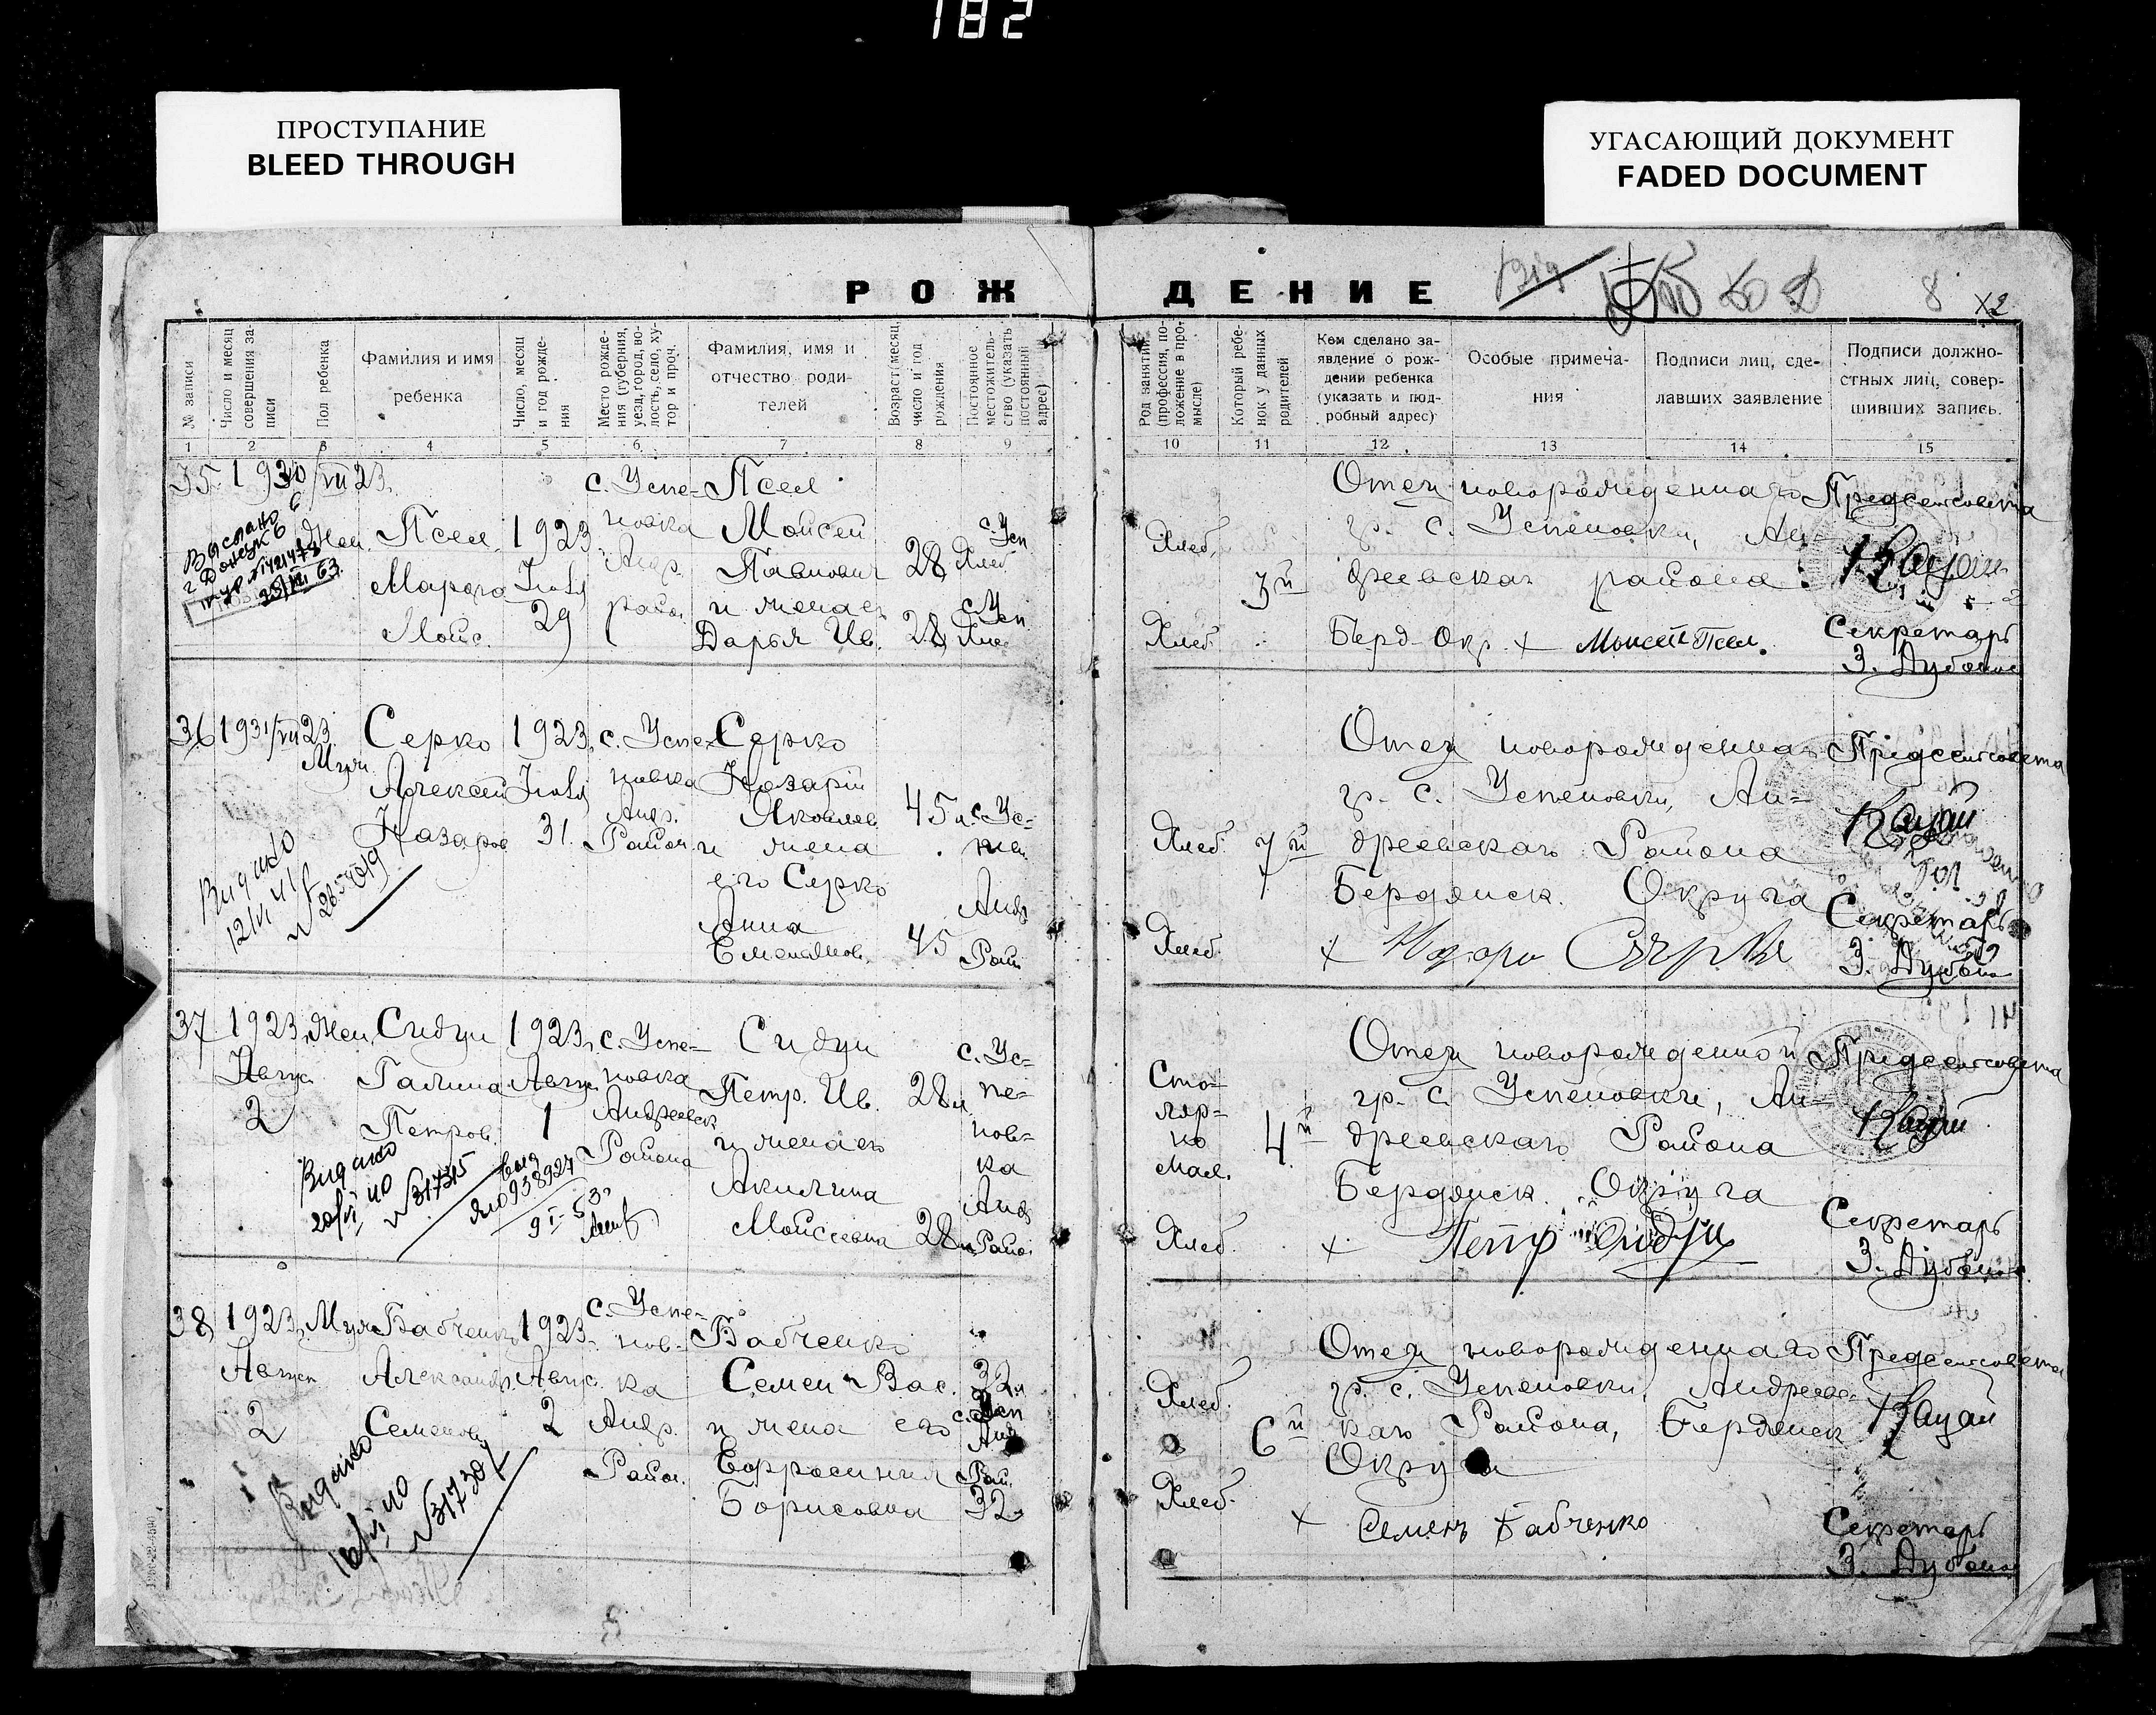 182
ПРОСТУПАНИЕ
BLEED THROUGH
УГАСАЮЩИЙ ДОКУМЕНТ
FADED DOCUMENT
РОЖДЕНИЕ
8
х2
№ записи
Число и месяц совершения записи
Пол ребенка
Фамилия и имя
ребенка
Число, месяц и год рождения
Место рождения (губерния, уезд, город, волость, село, хутор и проч.
Фамилия, имя и
отчество роди-
телей
Возраст (месяц, число и год рождения
Постоянное местожительство (указать постоянный адрес)
Род занятий (профессия, положение в промысле)
Который ребенок у данных родителей
Кем сделано за-
явление о рож-
дении ребенка
(указать и под-
робный адрес)
Особые примеча-
ния
Подписи лиц, сде-
лавших заявление
Подписи должно-
стных лиц, совер-
шивших запись.
1 2 3 4 5 6 7 8 9 10 11 12 13 14 15
35. 1930/VII 23.
Жен.
Псел
Марфа
Мойс.
1923
Июля
29
с. Успе-
новка
Андр.
район
Псел
Моисей
Павлович
и жена ег
Дарья Ив.
28
28
с. Усп.
Хлеб.
Хлеб.
3й
Отец новорожденнаго
гр. с. Успеновки, Ан-
дреевскаго района
Берд. Окр. + Моисей Псел.
Предсельсовета
Секретарь
З. Дубина
Выслано в
г Донецк
63
36 1931/VII 23.
Муж.
Серко
Алексей
Назаров
1923.
Июля
31.
с. Успе-
новка
Андр.
Район
Серко
Назарий
Яковлев
и жена
его Серко
Анна
Емельянов.
45
45
с. Ус-
пен
Андр
Рай
Хлеб.
7й
Хлеб.
Отец новорожденнаго
гр. с. Успеновки, Ан-
дреевскаго Района
Бердянск. Округа
Предсельсовета
Секретарь
З. Дубина
37 1923. Жен.
Август
2
Сидун
Галина
Петров.
1923.
Август
1
с. Успе-
новка
Андреевск
Района
Сидун
Петр. Ив.
и жена ег
Акилина
Мойсеевна
28
28
с. Ус-
пе-
нов-
ка
Андр
Райо
Сто-
ляр-
но
Хлеб.
4й
Отец новорожденной
гр. с. Успеновки, Ан-
дреевскаго Района
Бердянск. Округа
+ Петр Сидун
Предсельсовета
Секретарь
З. Дубина
Видано
20/VI 40
№317315
38 1923. Муж
Август
2
Бабченко
Александр.
Семенов
1923.
Август
2
с. Успе-
нов-
ка
Андр.
Район.
Бабченко
Семен Вас.
и жена его
Ефросиния
Борисовна
32
с. Усп
Андр
Рай.
32
Хлеб.
6й
Хлеб.
Отец новорожденнаго
гр. с. Успеновки, Андреевс-
каго Района, Бердянск
Округа
+ Семенъ Бабченко
Предсельсовета
Секретарь
З. Дубина
Видано
16/VI 40